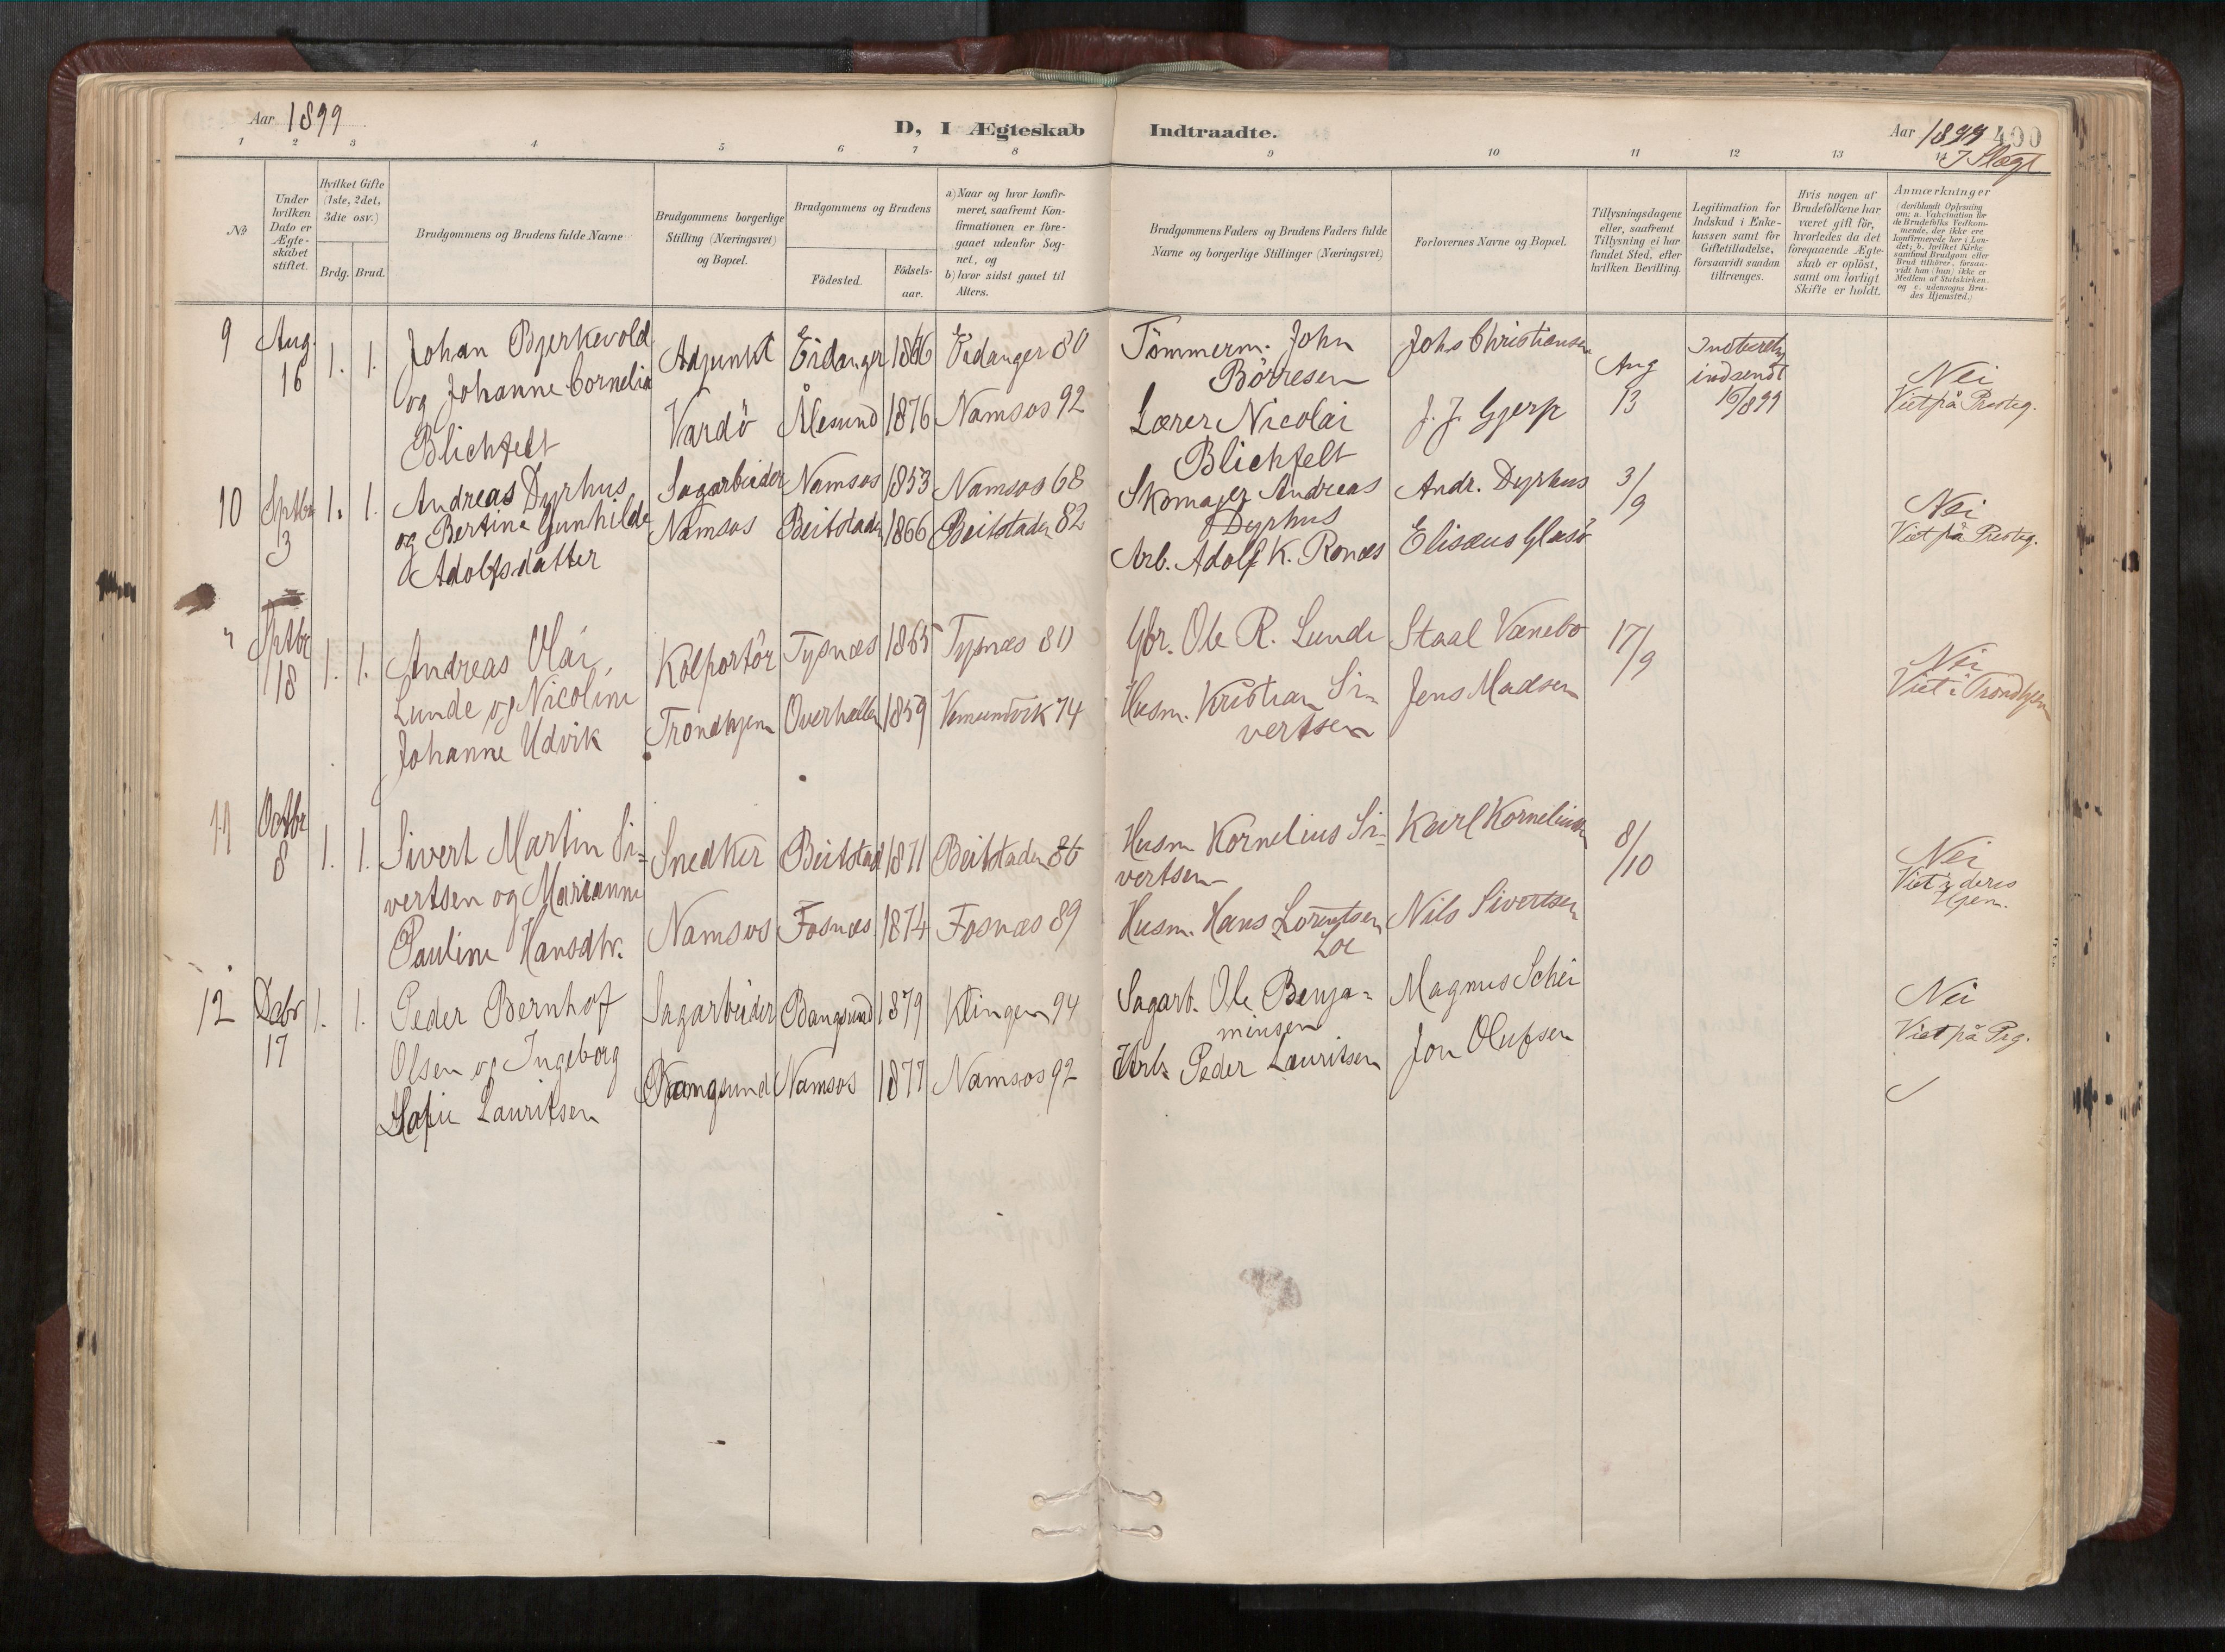 Aar 1899
D, I Ægteskab Indtraadte.
Aar 1899 400
i Slægt
1 2 3 4 5 6 7 8 9 10 11 12 13
No
Under hvilken Dato er Ægteskabet stiftet.
Hvilket Gifte (1ste, 2det, 3die osv.)
Brdg. Brud.
Brudgommens og Brudens fulde Navne
Brudgommens borgerlige Stilling (Næringsvei) og Bopæl.
Brudgommens og Brudens
Födested. Födsels-aar.
a) Naar og hvor konfirmeret, saafremt Konfirmationen er foregaaet udenfor Sognet, og
b) hvor sidst gaaet til Alters.
Brudgommens Faders og Brudens Faders fulde Navne og borgerlige Stillinger (Næringsvei)
Forlovernes Navne og Bopæl.
Tillysningsdagene eller, saafremt Tillysning ei har fundet Sted, efter hvilken Bevilling.
Legitimation for Indskud i Enkekassen samt for Giftetilladelse, forsaavidt saadan tiltrænges.
Hvis nogen af Brudefolkene har været gift för, hvorledes da det foregaaende Ægteskab er oplöst, samt om lovligt Skifte er holdt.
Anmærkninger
(deriblandt Oplysning om: a. Vakcination for de Brudefolks Vedkommende, der ikke ere konfirmerede her i Landet; b. hvilket Kirkesamfund Brudgom eller Brud tilhörer, forsaavidt han (hun) ikke er Medlem af Statskirken. og c. udensogns Brudes Hjemsted.)
9 Aug. 16 1. 1. Johan Bjerkevold
og Johanne Cornelia
Blichfelt
Adjunkt Eidanger 1866 Eidanger 80
Vardö Ålesund 1876 Namsos 92
Tömmerm. John
Börresen
Lærer Nicolai
Blichfelt
Johs Christiansen
J. J. Gjerp
Aug
13
indsendt
16/8 99
Nei
Viet på Presteg.
10 Sptbr 3 1. 1. Andreas Dyrhus
og Bertine Gunhilde
Adolfsdatter
Sagarbeider Namsos 1853 Namsos 68
Namsos Beitstaden 1866 Beitstaden 82
Skomager Andreas
Dyrhus
Arb. Adolf K. Ronæs
Andr. Dyrhus
Elisæus Glasö
3/9
Nei
Viet på Presteg.
" Sptbr 18 1. 1. Andreas Olai
Lunde og Nicoline
Johanne Udvik
Kolportör Tysnæs 1865 Tysnæs 80
Trondhjem Overhallen 1859 Vemundvik 74
Gbr. Ole R. Lunde
Husm. Kristian Si-
vertsen
Staal Vænebo
Jens Madsen
17/9
Nei
Viet i Trondhjem
11 Octbr 8 1. 1. Sivert Martin Si-
vertsen og Marianne
Pauline Hansdtr.
Snedker Beitstad 1871 Beitstaden 86
Namsos Fosnæs 1874 Fosnæs 89
Husm Kornelius Si-
vertsen
Husm. Hans Lorentsen
Loe
Karl Korneliussen
Nils Sivertsen
8/10
Nei
Viet i deres
Hjem.
12 Dcbr 17 1. 1. Peder Bernhof
Olsen og Ingeborg
Sofie Lauritsen
Sagarbeider Bangsund 1879 Klingen 94
Bangsund Namsos 1877 Namsos 92
Sagarb. Ole Benja-
minsen
Arb. Peder Lauritsen
Magnus Schei
Jon Olufsen
Nei
Viet på Pg.